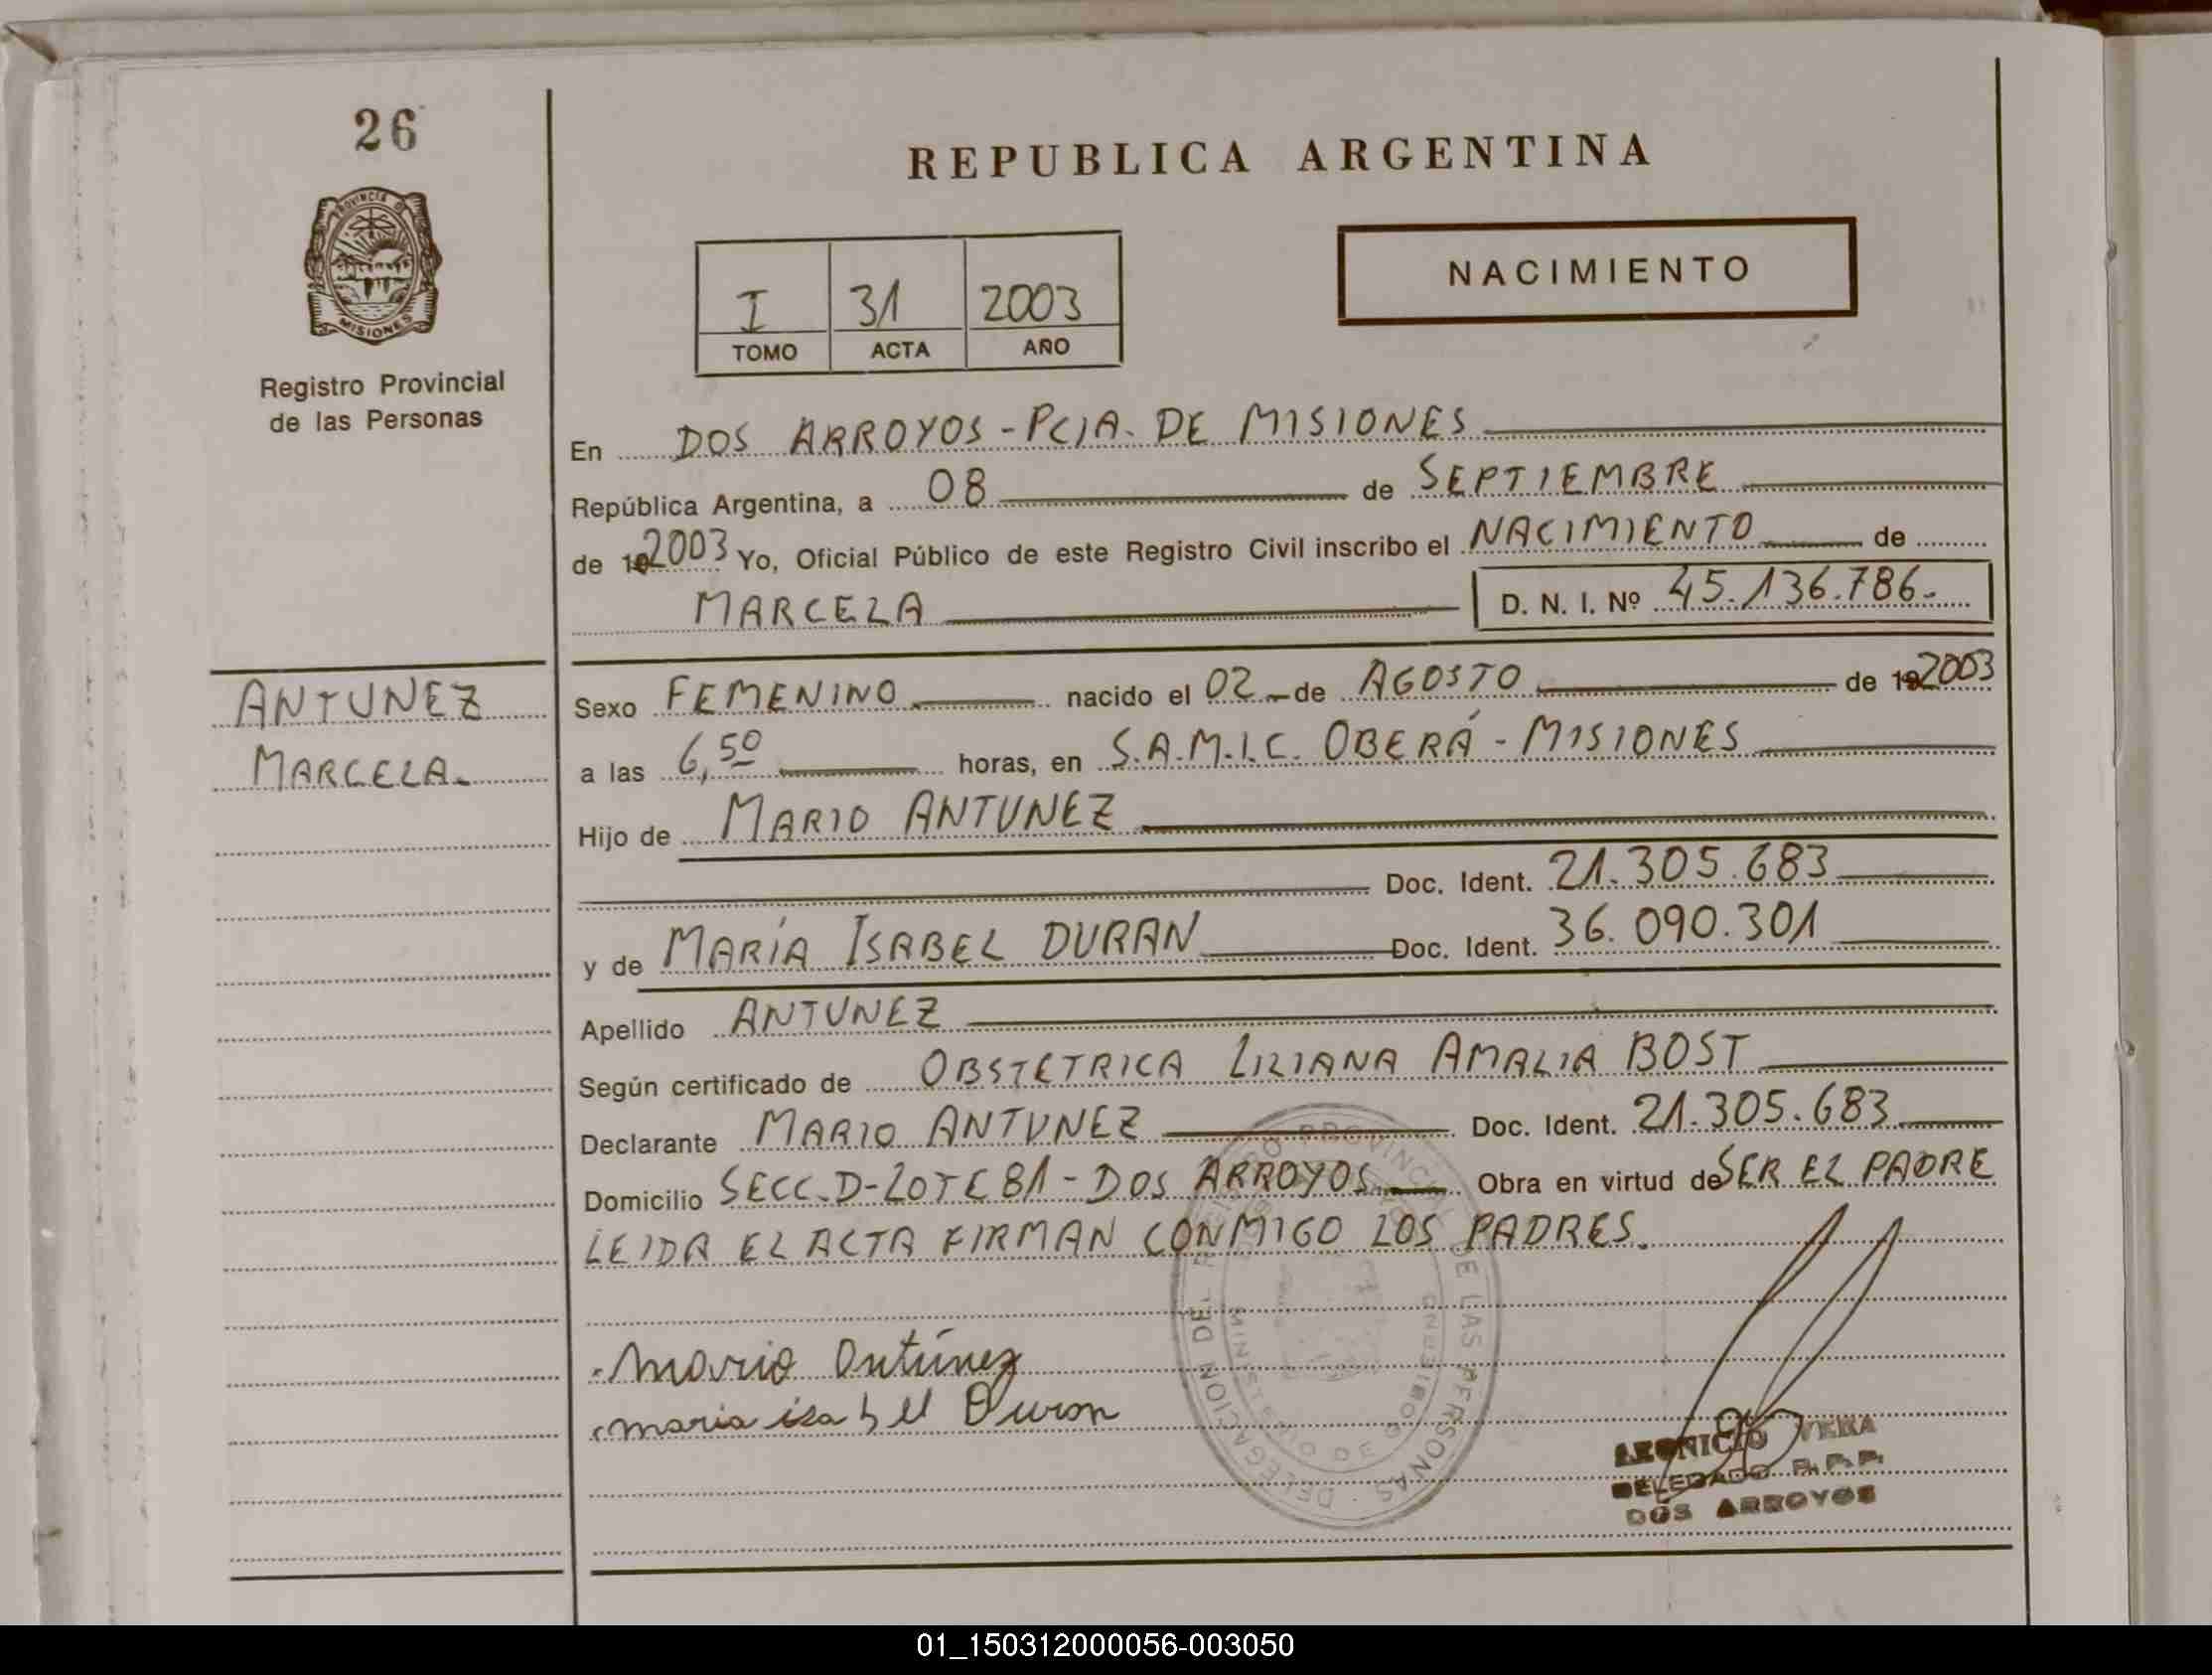 26
REPUBLICA ARGENTINA
PROVINCIA DE
MISIONES
Registro Provincial
de las Personas
NACIMIENTO
I 31 2003
TOMO ACTA AÑO
En DOS ARROYOS - PCIA. DE MISIONES
República Argentina, a 08 de SEPTIEMBRE
de 2003 Yo, Oficial Público de este Registro Civil inscribo el NACIMIENTO de
MARCELA D. N. I. Nº 45.136.786.
ANTUNEZ
MARCELA.
Sexo FEMENINO nacido el 02 de AGOSTO de 192003
a las 6,50 horas, en S.A.M.I.C. OBERÁ - MISIONES
Hijo de MARIO ANTUNEZ
Doc. Ident. 21.305.683
y de MARÍA ISABEL DURAN Doc. Ident. 36.090.301
Apellido ANTUNEZ
Según certificado de OBSTETRICA LILIANA AMALIA BOST
Declarante MARIO ANTUNEZ Doc. Ident. 21.305.683
Domicilio SECC. D - LOTE 81 - DOS ARROYOS Obra en virtud de SER EL PADRE
LEIDA EL ACTA FIRMAN CONMIGO LOS PADRES.
Mario Antúnez
maria isabel Duron
LEONICIO VERA
DELEGADO R.P.P.
DOS ARROYOS
01_150312000056-003050